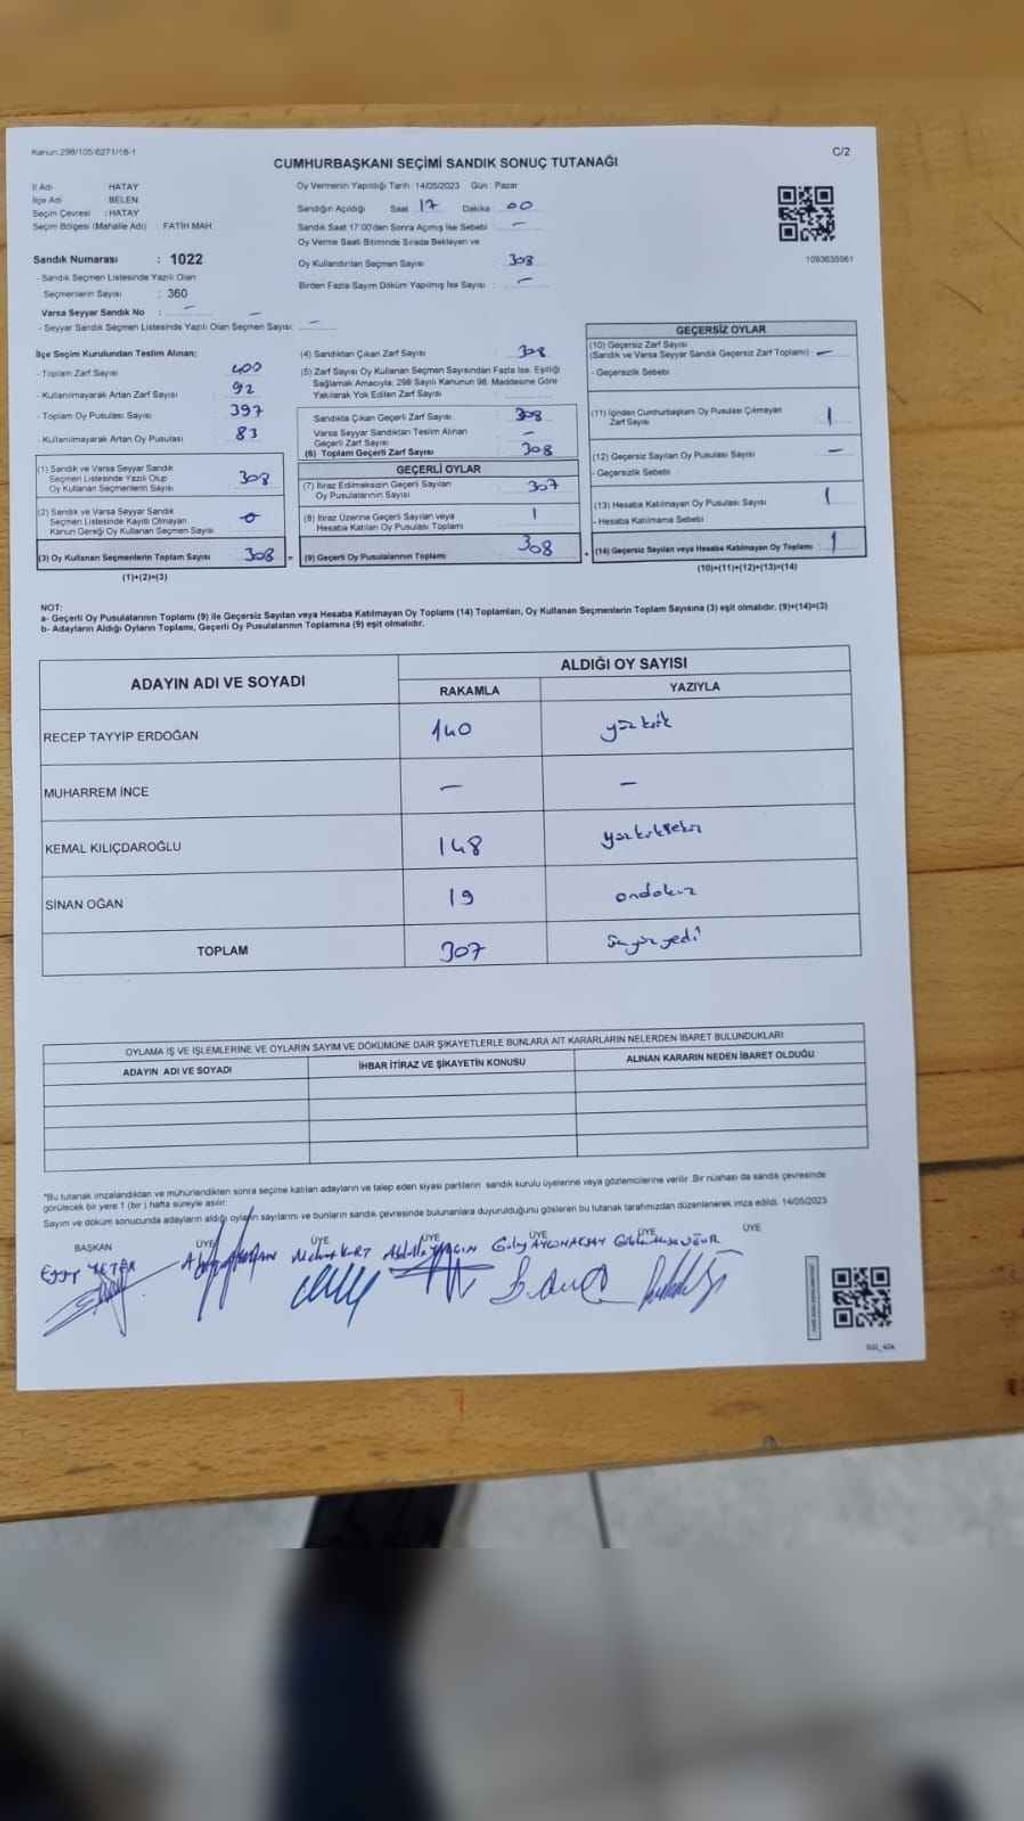 Kanun:298/105/6271/16-1
C/2
CUMHURBAŞKANI SEÇİMİ SANDIK SONUÇ TUTANAĞI
İl Adı HATAY
İlçe Adı BELEN
Seçim Çevresi : HATAY
Seçim Bölgesi (Mahalle Adı) : FATİH MAH
Sandık Numarası : 1022
- Sandık Seçmen Listesinde Yazılı Olan
Seçmenlerin Sayısı : 360
Varsa Seyyar Sandık No : -
- Seyyar Sandık Seçmen Listesinde Yazılı Olan Seçmen Sayısı: -
Oy Vermenin Yapıldığı Tarih 14/05/2023 Gün : Pazar
Sandığın Açıldığı Saat 17 Dakika 00
Sandık Saat 17:00'den Sonra Açımış İse Sebebi -
Oy Verme Saati Bitiminde Sırada Bekleyen ve
Oy Kullandırılan Seçmen Sayısı 308
Birden Fazla Sayım Döküm Yapılmış İse Sayısı : -
1093635961
İlçe Seçim Kurulundan Teslim Alınan:
- Toplam Zarf Sayısı 400
- Kullanılmayarak Artan Zarf Sayısı 92
- Toplam Oy Pusulası Sayısı 397
- Kullanılmayarak Artan Oy Pusulası 83
(1) Sandık ve Varsa Seyyar Sandık
Seçmen Listesinde Yazılı Olup
Oy Kullanan Seçmenlerin Sayısı 308
(2) Sandık ve Varsa Seyyar Sandık
Seçmen Listesinde Kayıtlı Olmayan
Kanun Gereği Oy Kullanan Seçmen Sayısı 0
(3) Oy Kullanan Seçmenlerin Toplam Sayısı 308
(1)+(2)=(3)
(4) Sandıktan Çıkan Zarf Sayısı 308
(5) Zarf Sayısı Oy Kullanan Seçmen Sayısından Fazla İse, Eşitliği
Sağlamak Amacıyla; 298 Sayılı Kanunun 98. Maddesine Göre
Yakılarak Yok Edilen Zarf Sayısı
Sandıkta Çıkan Geçerli Zarf Sayısı 308
Varsa Seyyar Sandıktan Teslim Alınan
Geçerli Zarf Sayısı -
(6) Toplam Geçerli Zarf Sayısı 308
GEÇERLİ OYLAR
(7) İtiraz Edilmeksizin Geçerli Sayılan
Oy Pusulalarının Sayısı 307
(8) İtiraz Üzerine Geçerli Sayılan veya
Hesaba Katılan Oy Pusulası Toplamı 1
(9) Geçerli Oy Pusulalarının Toplamı 308
GEÇERSİZ OYLAR
(10) Geçersiz Zarf Sayısı
(Sandık ve Varsa Seyyar Sandık Geçersiz Zarf Toplamı) -
- Geçersizlik Sebebi
(11) İçinden Cumhurbaşkanı Oy Pusulası Çıkmayan
Zarf Sayısı 1
(12) Geçersiz Sayılan Oy Pusulası Sayısı -
- Geçersizlik Sebebi
(13) Hesaba Katılmayan Oy Pusulası Sayısı 1
- Hesaba Katılmama Sebebi
(14) Geçersiz Sayılan veya Hesaba Katılmayan Oy Toplamı 1
(10)+(11)+(12)+(13)=(14)
NOT:
a- Geçerli Oy Pusulalarının Toplamı (9) ile Geçersiz Sayılan veya Hesaba Katılmayan Oy Toplamı (14) Toplamları, Oy Kullanan Seçmenlerin Toplam Sayısına (3) eşit olmalıdır. (9)+(14)=(3)
b- Adayların Aldığı Oyların Toplamı, Geçerli Oy Pusulalarının Toplamına (9) eşit olmalıdır.
ADAYIN ADI VE SOYADI ALDIĞI OY SAYISI
RAKAMLA YAZIYLA
RECEP TAYYİP ERDOĞAN 140 yüzkırk
MUHARREM İNCE - -
KEMAL KILIÇDAROĞLU 148 yüzkırksekiz
SİNAN OĞAN 19 ondokuz
TOPLAM 307 üçyüzyedi
OYLAMA İŞ VE İŞLEMLERİNE VE OYLARIN SAYIM VE DÖKÜMÜNE DAİR ŞİKAYETLERLE BUNLARA AİT KARARLARIN NELERDEN İBARET BULUNDUKLARI
ADAYIN ADI VE SOYADI İHBAR İTİRAZ VE ŞİKAYETİN KONUSU ALINAN KARARIN NEDEN İBARET OLDUĞU
"Bu tutanak imzalandıktan ve mühürlendikten sonra seçime katılan adayların ve talep eden siyasi partilerin sandık kurulu üyelerine veya gözlemcilerine verilir. Bir nüshası da sandık çevresinde
görülecek bir yere 1 (bir ) hafta süreyle asılır.
Sayım ve döküm sonucunda adayların aldığı oyların sayılarını ve bunların sandık çevresinde bulunanlara duyurulduğunu gösteren bu tutanak tarafımızdan düzenlenerek imza edildi. 14/05/2023
BAŞKAN ÜYE ÜYE ÜYE ÜYE ÜYE ÜYE
Mehmet KURT